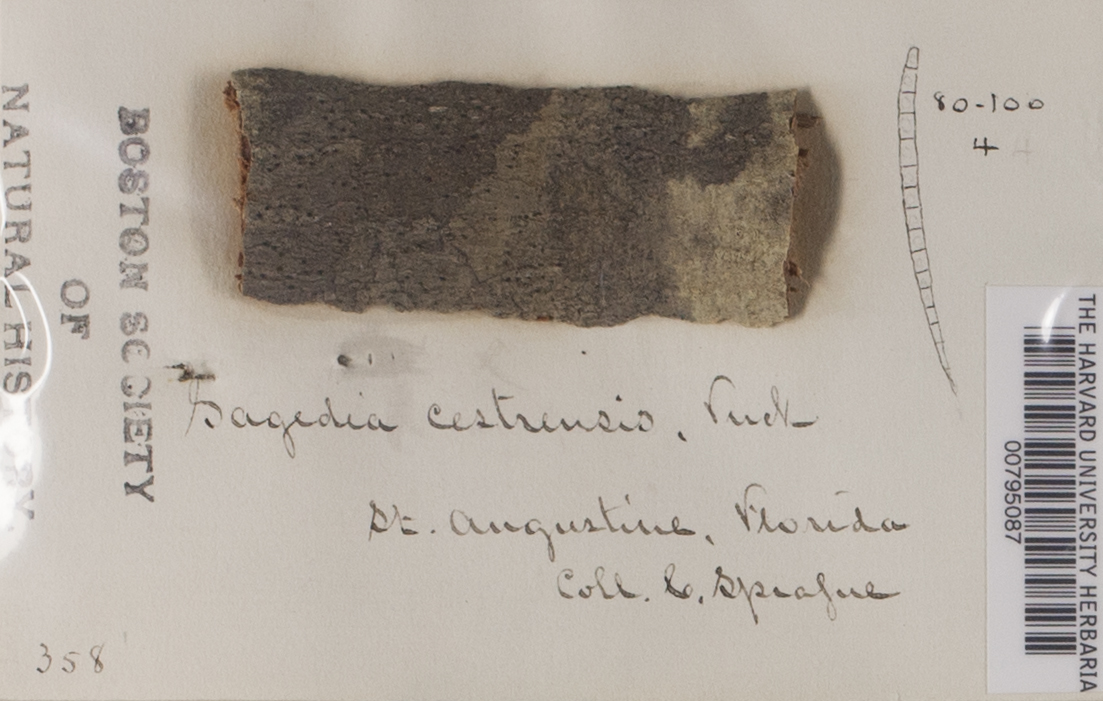 BOSTON SOCIETY
OF
NATURAL HIS RY.
80-100
4
Sagedia cestrensis, Tuck
St. Augustine, Florida
Coll. C. Sprague
358
THE HARVARD UNIVERSITY HERBARIA
00795087